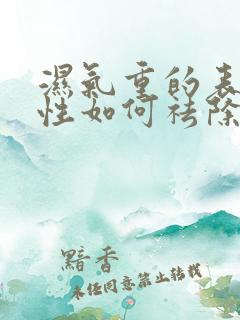 濕氣重的表
性如何祛除
黯香
未经同意禁止转载